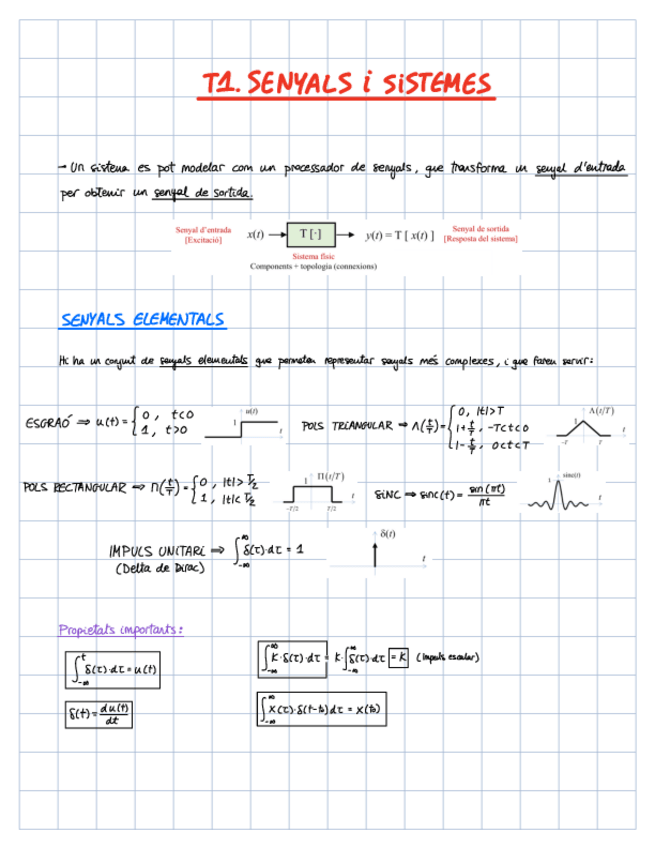 T1. SENYALS i SISTEMES
→ Un sistema es pot modelar com un processador de senyals, que transforma un senyal d'entrada
per obtenir un senyal de sortida.
Senyal d'entrada
[Excitació]
x(t) → T [·] → y(t) = T [ x(t) ]
Senyal de sortida
[Resposta del sistema]
Sistema físic
Components + topologia (connexions)
SENYALS ELEMENTALS
Hi ha un conjunt de senyals elementals que permeten representar senyals més complexes, i que farem servir:
ESGRAÓ ⇒ u(t) = { 0, t<0
1, t>0
u(t)
1
t
POLS TRIANGULAR ⇒ Λ(t/T) = { 0, |t|>T
1+t/T, -T<t<0
1-t/T, 0<t<T
Λ(t/T)
1
-T T
t
POLS RECTANGULAR ⇒ Π(t/T) = { 0, |t|>T/2
1, |t|<T/2
Π(t/T)
1
-T/2 T/2
t
SINC ⇒ sinc(t) = sin(πt)/πt
sinc(t)
1
t
IMPULS UNITARI ⇒ ∫_{-∞}^{∞} δ(τ)·dτ = 1
(Delta de Dirac)
δ(t)
t
Propietats importants:
∫_{-∞}^{t} δ(τ)·dτ = u(t)
∫_{-∞}^{∞} K·δ(τ)·dτ = K·∫_{-∞}^{∞} δ(τ)·dτ = K (impuls escalar)
δ(t) = du(t)/dt
∫_{-∞}^{∞} x(τ)·δ(t-t₀)dτ = x(t₀)